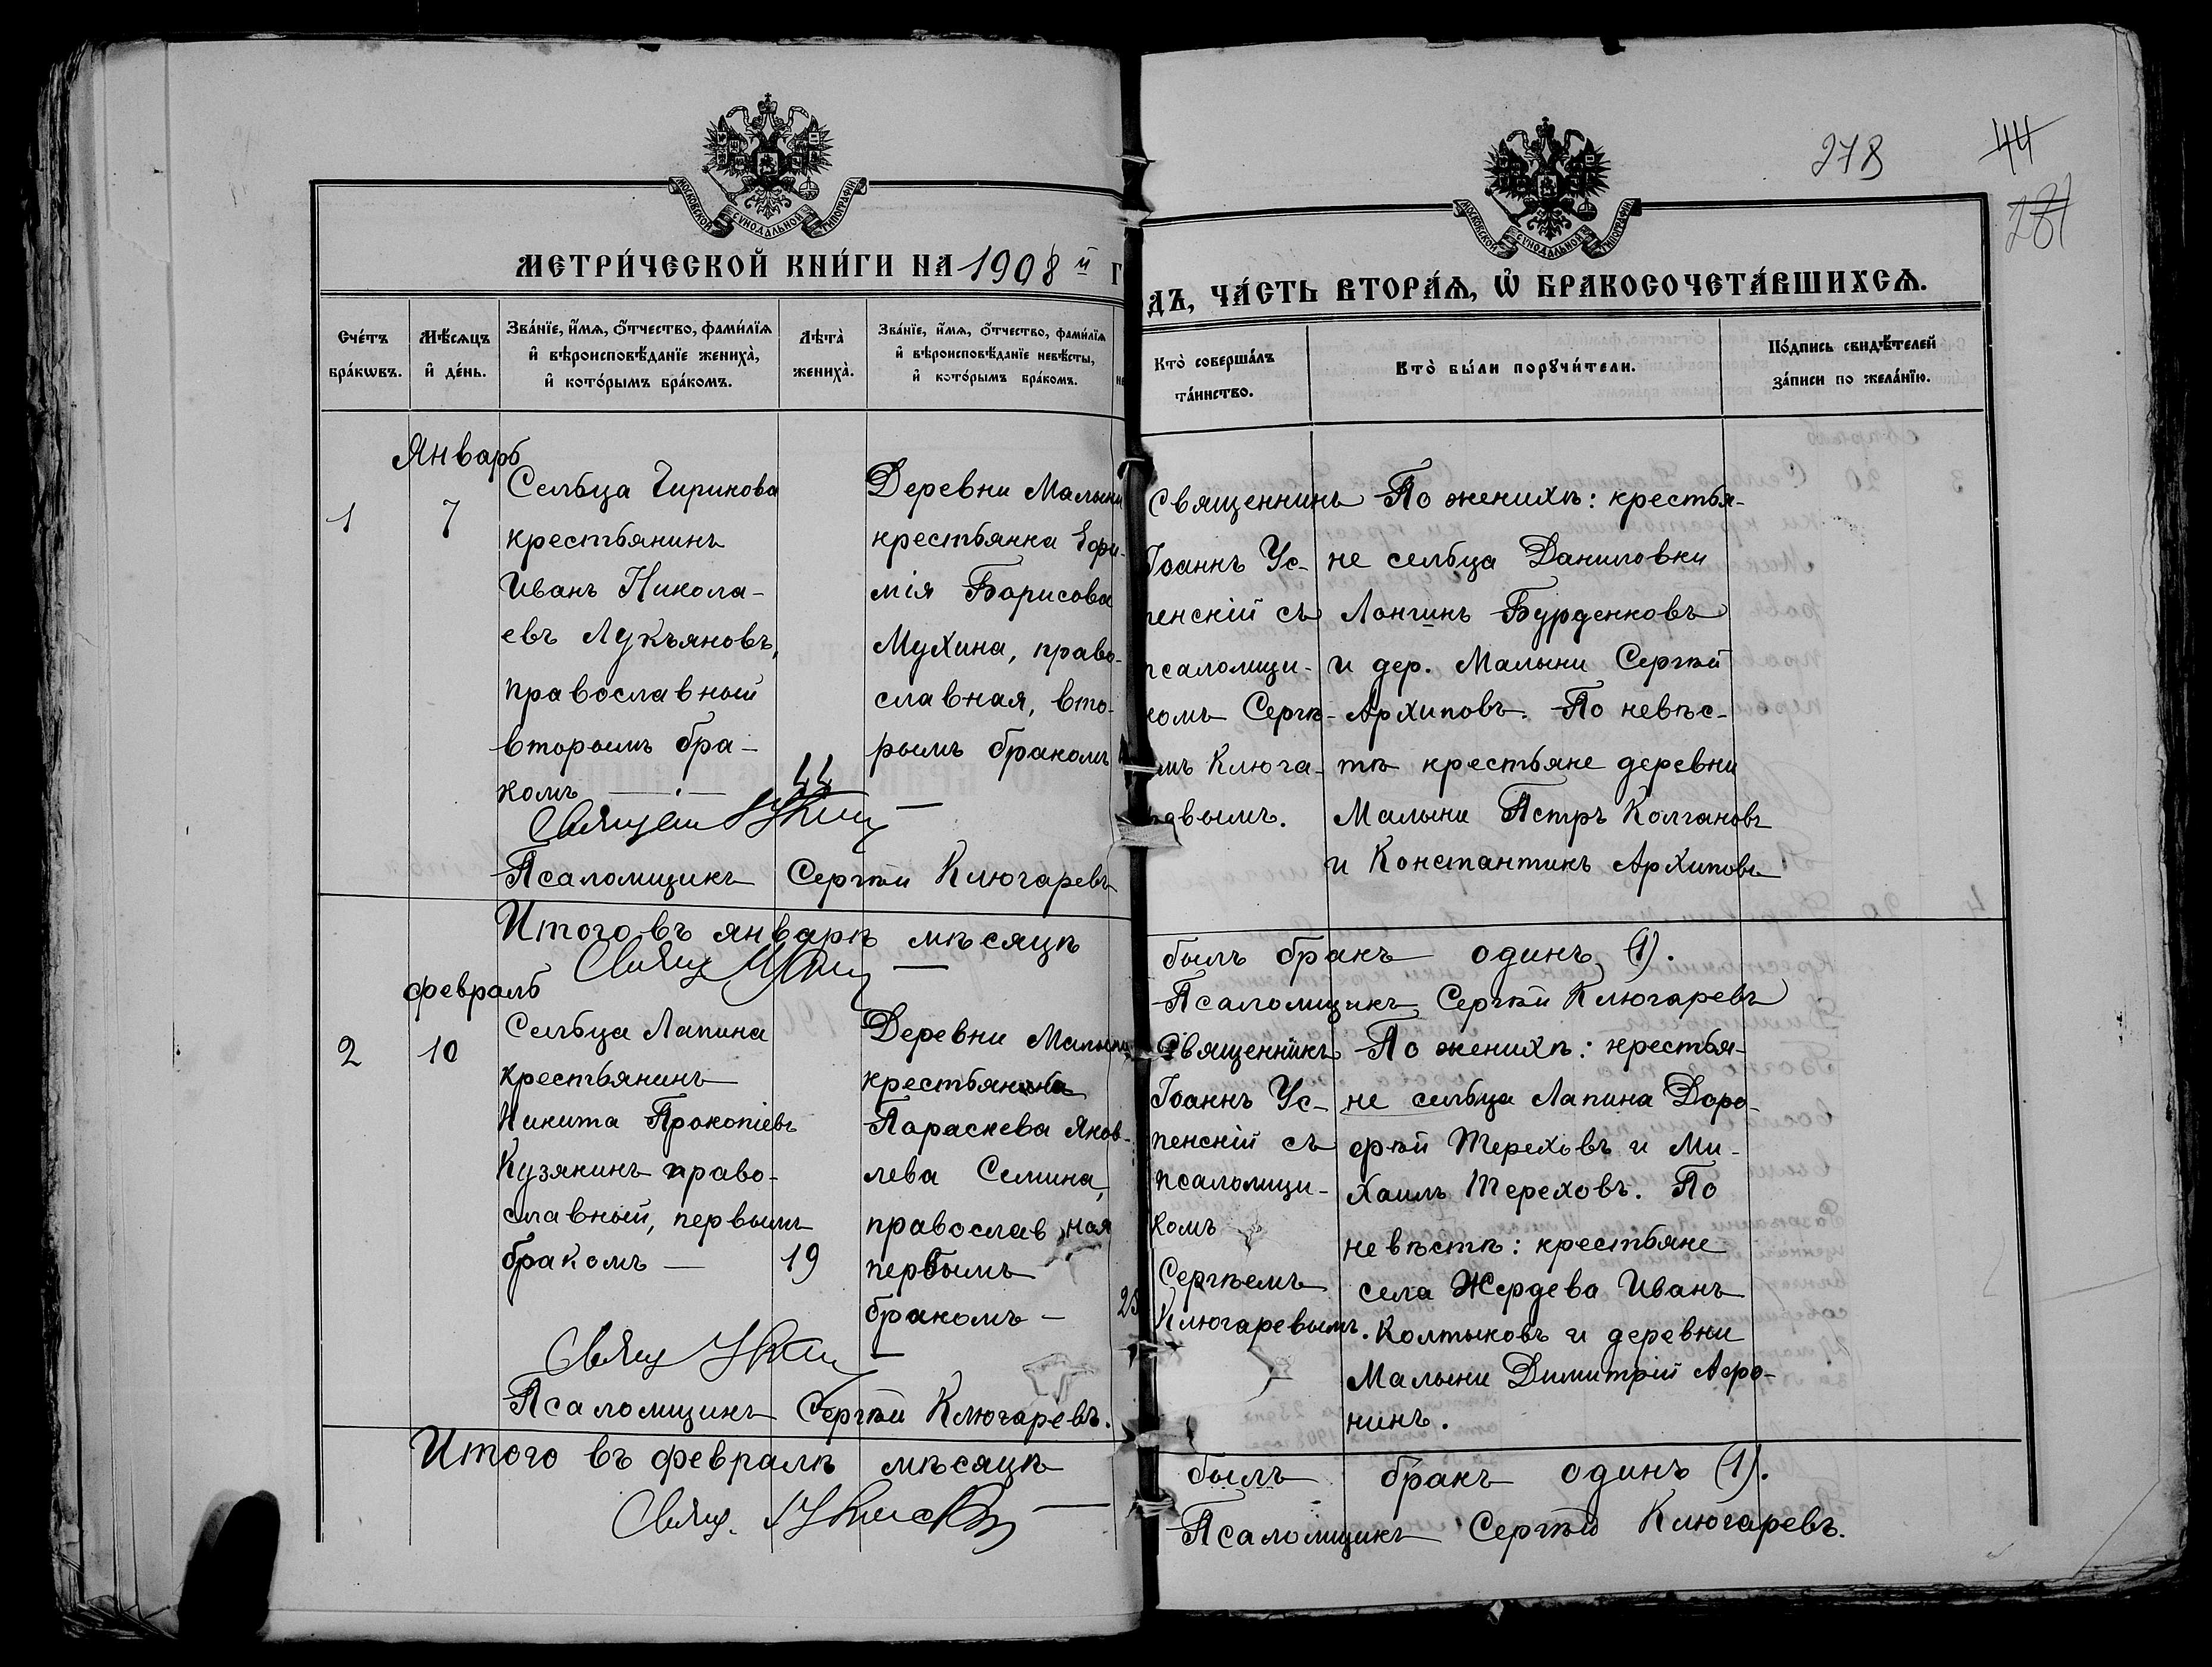 278
44
281
МОСКОВСКОЙ СѴНОДАЛЬНОЙ ТИПОГРАФІИ
МОСКОВСКОЙ СѴНОДАЛЬНОЙ ТИПОГРАФІИ
МЕТРИ́ЧЕСКОЙ КНИ́ГИ НА 1908 й Г
ДЪ, ЧА́СТЬ ВТОРА́Ѧ, Ѡ҆ БРАКОСОЧЕТА́ВШИХСѦ.
Сче́тъ
бра́кѡвъ.
Мѣ́сѧцъ
и҆ де́нь.
Зва́нїе, и҆́мѧ, ѻ҆́тчество, фами́лїѧ
и҆ вѣроисповѣ́данїе жениха̀,
и҆ кото́рымъ бра́комъ.
Лѣта̀
жениха̀.
Зва́нїе, и҆́мѧ, ѻ҆́тчество, фами́лїѧ
и҆ вѣроисповѣ́данїе невѣ́сты,
и҆ кото́рымъ бра́комъ.
не
Кто̀ соверша́лъ
та́инство.
Кто̀ бы́ли порꙋчи́тели.
По́дпись свидѣ́телей
за́писи по жела́нїю.
Январь
1
7
Сельца Чирикова
крестьянинъ
Иванъ Никола-
евъ Лукъяновъ,
православный
вторымъ бра-
комъ —
44
Деревни Малыни
крестьянка Ефи-
мія Борисова
Мухина, право-
славная, вто-
рымъ бракомъ
Священникъ
Іоаннъ Ус-
пенскій съ
псаломщи-
комъ Сергѣ-
мъ Ключа-
рaвымъ.
По женихѣ: крестья-
не сельца Даниловки
Лонгинъ Бурденковъ
и дер. Малыни Сергѣй
Архиповъ. По невѣс-
тѣ крестьяне деревни
Малыни Петръ Колгановъ
и Константинъ Архиповъ
Псаломщикъ Сергѣй Ключаревъ
Итого въ январѣ мѣсяцѣ
былъ бракъ одинъ (1).
Псаломщикъ Сергѣй Ключаревъ
февраль
2
10
Сельца Лапина
крестьянинъ
Никита Прокопіевъ
Кузякинъ право-
славный, первымъ
бракомъ —
19
Деревни Малыни
крестьянка
Параскева Яков-
лева Семина,
православная
первымъ
бракомъ —
25
Священникъ
Іоаннъ Ус-
пенскій съ
псаломщи-
комъ
Сергѣемъ
Ключаревымъ.
По женихѣ: крестья-
не сельца Лапина Доро-
фѣй Тереховъ и Ми-
хаилъ Тереховъ. По
невѣстѣ: крестьяне
села Жердева Иванъ
Колтыковъ и деревни
Малыни Димитрій Афо-
нинъ.
Псаломщикъ Сергѣй Ключаревъ.
Итого въ февралѣ мѣсяцѣ
былъ бракъ одинъ (1).
Псаломщикъ Сергѣй Ключаревъ.